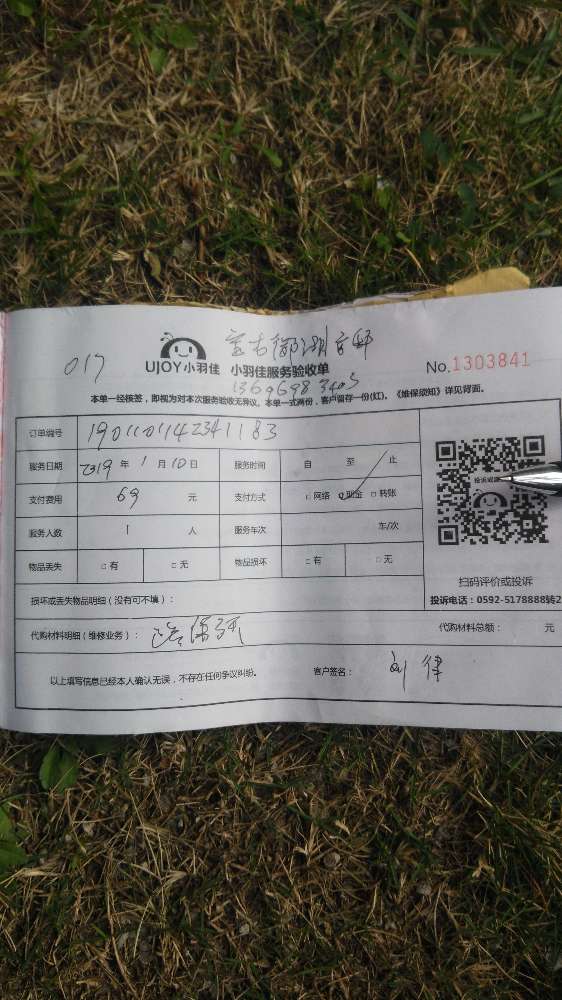 017
UJOY小羽佳 小羽佳服务验收单 No.1303841
本单一经核签，即视为对本次服务验收无异议。本单一式两份，客户留存一份(红)。《维保须知》详见背面。
订单编号 1901101142341183
服务日期 2319 年 1 月 10 日 服务时间 自 至 止
支付费用 69 元 支付方式 □ 网络 □ 现金 □ 转账
服务人数 1 人 服务车次 车/次
物品丢失 □ 有 □ 无 物品损坏 □ 有 □ 无
扫码评价或投诉
投诉电话：0592-5178888转2
损坏或丢失物品明细（没有可不填）：
代购材料明细（维修业务）： 代购材料总额： 元
以上填写信息已经本人确认无误，不存在任何争议纠纷。 客户签名： 刘律